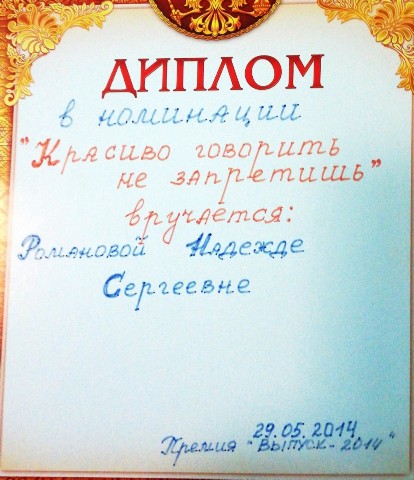 ДИПЛОМ
в номинации
"Красиво говорить
не запретишь"
вручается:
Романовой Надежде
Сергеевне
29.05.2014
Премия "ВЫПУСК-2014"